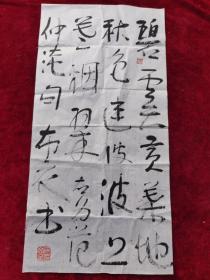 碧云天黄叶地
秋色连波波上
寒烟翠
范
仲淹句
书